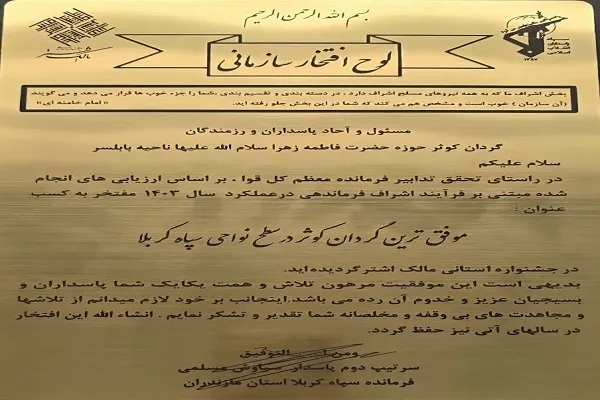 بسم الله الرحمن الرحیم
سپاه
پاسداران
انقلاب
اسلامی
۱۳۵۷
لوح افتخار سازمانی
بخش اشراف ما که به همه نیروهای مسلح اشراف دارد ، در دسته بندی و تقسیم بندی ،شما را جزء خوب ها قرار می دهد و می گویند
(آن سازمان ) خوب است و مشخص هم می کند که شما در این بخش جلو رفته اید. « امام خامنه ای»
مسئول و آحاد پاسداران و رزمندگان
گردان کوثر حوزه حضرت فاطمه زهرا سلام الله علیها ناحیه بابلسر
سلام علیکم
در راستای تحقق تدابیر فرمانده معظم کل قوا ، بر اساس ارزیابی های انجام
شده مبتنی بر فرآیند اشراف فرماندهی درعملکرد سال ۱۴۰۳ مفتخر به کسب
عنوان :
موفق ترین گردان کوثر در سطح نواحی سپاه کربلا
در جشنواره استانی مالک اشتر گردیده اید.
بدیهی است این موفقیت مرهون تلاش و همت یکایک شما پاسداران و
بسیجیان عزیز و خدوم آن رده می باشد.اینجانب بر خود لازم میدانم از تلاشها
و مجاهدت های بی وقفه و مخلصانه شما تقدیر و تشکر نمایم . انشاء الله این افتخار
در سالهای آتی نیز حفظ گردد.
ومن الله التوفیق
سرتیپ دوم پاسدار سیاوش مسلمی
فرمانده سپاه کربلا استان مازندران